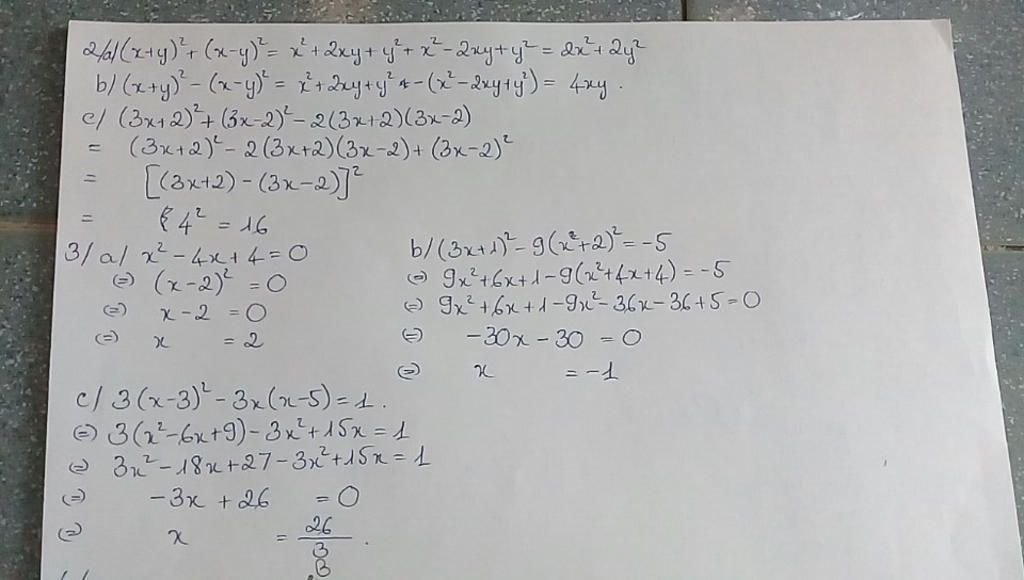 2/a/ (x+y)² + (x-y)² = x² + 2xy + y² + x² - 2xy + y² = 2x² + 2y²
b/ (x+y)² - (x-y)² = x² + 2xy + y² - (x² - 2xy + y²) = 4xy.
c/ (3x+2)² + (3x-2)² - 2(3x+2)(3x-2)
= (3x+2)² - 2(3x+2)(3x-2) + (3x-2)²
= [(3x+2) - (3x-2)]²
= 4² = 16
3/ a/ x² - 4x + 4 = 0
(=) (x-2)² = 0
(=) x - 2 = 0
(=) x = 2
b/ (3x+1)² - 9(x+2)² = -5
(=) 9x² + 6x + 1 - 9(x² + 4x + 4) = -5
(=) 9x² + 6x + 1 - 9x² - 36x - 36 + 5 = 0
(=) -30x - 30 = 0
(=) x = -1
c/ 3(x-3)² - 3x(x-5) = 1.
(=) 3(x² - 6x + 9) - 3x² + 15x = 1
(=) 3x² - 18x + 27 - 3x² + 15x = 1
(=) -3x + 26 = 0
(=) x = 26/3.